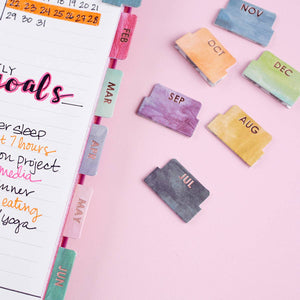 14 15 16 17 18 19 20 21
22 23 24 25 26 27 28
29 30 31
FEB
LY
goals
MAR
er sleep
t 7 hours
on project
media
nner
eating
/yoga
APR
MAY
JUN
NOV
OCT
DEC
SEP
AUG
JUL